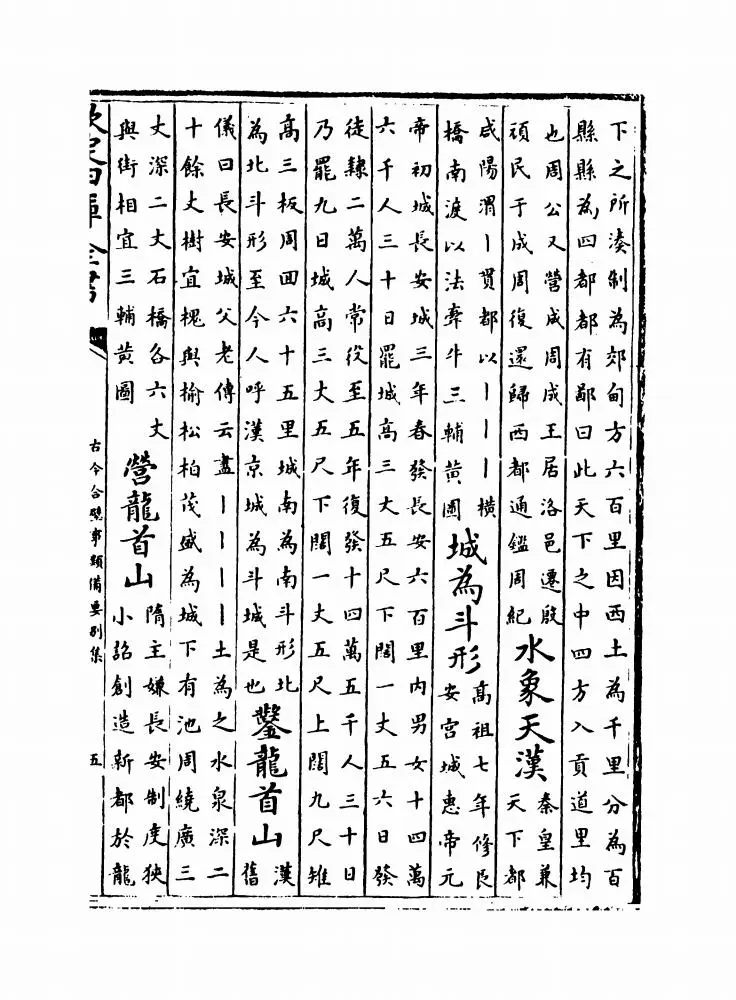 下之所湊制為郊甸方六百里因西土為千里分為百
縣縣為四都都有鄙曰此天下之中四方入貢道里均
也周公又營成周成王居洛邑遷殷
頑民于成周復還歸西都通鑑周紀
水象天漢
秦皇兼
天下都
咸陽渭丨貫都以丨丨丨橫
橋南渡以法牽牛三輔黃圖
城為斗形
高祖七年修長
安宫城惠帝元
帝初城長安城三年春發長安六百里内男女十四萬
六千人三十日罷城高三大五尺下闊一丈五六日發
徒隸二萬人常役至五年復發十四萬五千人三十日
乃罷九日城高三丈五尺下闊一丈五尺上闊九尺雉
高三板周回六十五里城南為南斗形北
為北斗形至今人呼漢京城為斗城是也
鑿龍首山
漢
舊
儀曰長安城父老傳云盡丨丨丨丨土為之水泉深二
十餘丈樹宜槐與榆松柏茂盛為城下有池周繞廣三
丈深二丈石橋各六丈
與街相宜三輔黃圖
營龍首山
隋主嫌長安制度狹
小詔創造新都於龍
欽定四庫全書
古今合璧事類備要別集
五